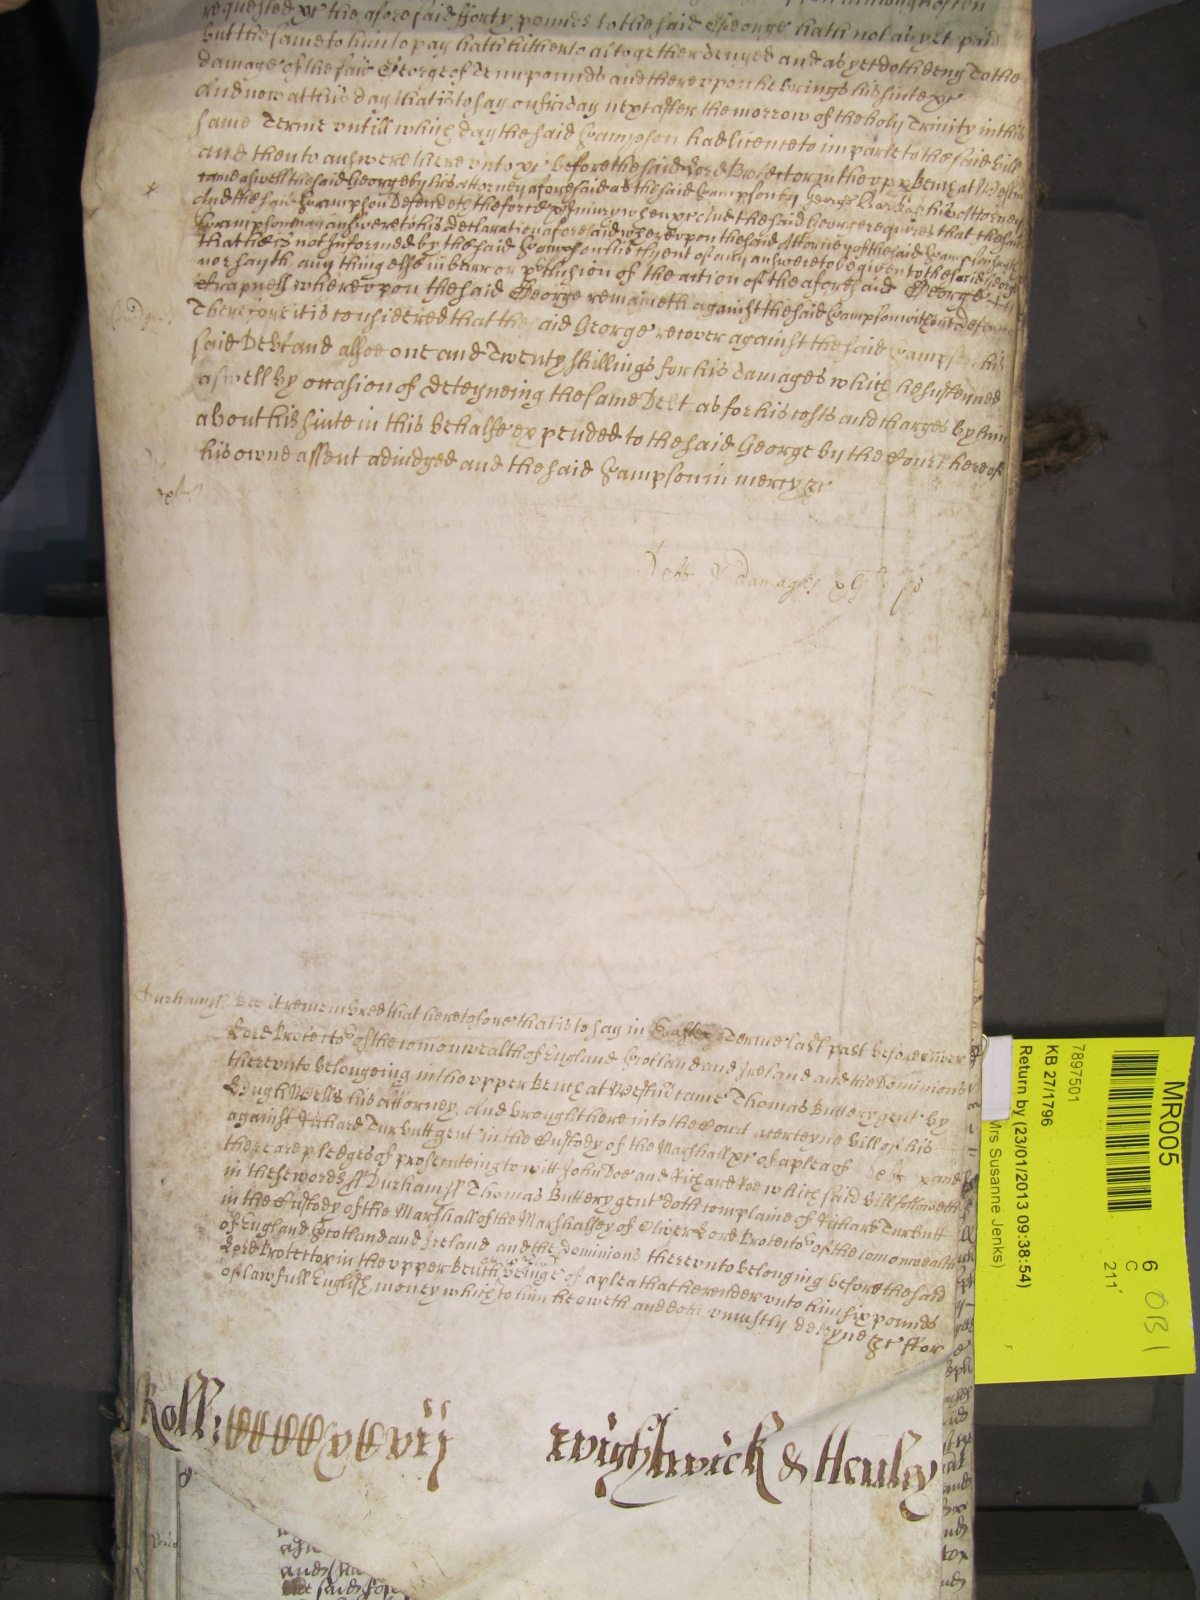 requested &c the aforesaid fforty pounds to the said George hath not as yet paid
but the same to him to pay hath hitherto altogether denyed and as yet doth deny To the
damage of the said George of Tenn pounds and therevpon he brings his suite &c
And now at this day that is to say on friday next after the morrow of the holy Trinity in this
same Terme vntill which day the said Sampson had licence to imparle to the said bill
and then to answere therevnto &c before the said Lord Protector in the vpper bench at Westm
came aswell the said George by his attorney aforesaid as the said Sampson by George his Attorney
And the said Sampson Defendeth the force & Iniury when &c And the said George requires that the said
Sampson may answere to his Declaration aforesaid wherevpon the said Attorney of the said Sampson sayth
that hee is not Informed by the said Sampson his Clyent of any answere to be given to the said George
nor sayth any thing else in barr or p'clusion of the action of the aforesaid George
wherevpon the said George remaineth against the said Sampson without Defence
Therefore it is considered that the said George recover against the said Sampson his
said Debt and alsoe one and Twenty shillings for his damages which he susteyned
aswell by occasion of deteyneing the same Debt as for his costs and charges by him
about his suite in this behalfe expended to the said George by the Court here of
his owne assent adiudged and the said Sampson in mercy &c
Debt & damages
Durham ss Bee it remembred that heretofore that is to say in Easter Terme last past before Oliver
Lord Protector of the comonwealth of England Scotland and Ireland and the Dominions
therevnto belongeing in the vpper bench at Westm came Thomas Buttery gent by
Hugh Wells his attorney And brought here into the Court a certeyne bill of his
against Richard Turbutt gent in the Custody of the Marshall &c of a plea of Debt and
there are pledges of prosecuteing to witt John Doe and Richard Roe which said bill followeth
in these words ss Durham ss Thomas Buttery gent doth complaine of Richard Turbutt
in the Custody of the Marshall of the Marshalsey of Oliver Lord Protector of the comonwealth
of England Scotland and Ireland and the Dominions therevnto belonging before the said
Lord Protector in the vpper bench being of a plea that he render vnto him six pounds
of lawfull English money which to him he oweth and doth vniustly deteyne &c ffor
Roll:
Wightwick & Henley
MR005
6
C
211
OB1
7897501
KB 27/1796
Return by (23/01/2013 09:38:54)
Mrs Susanne Jenks)